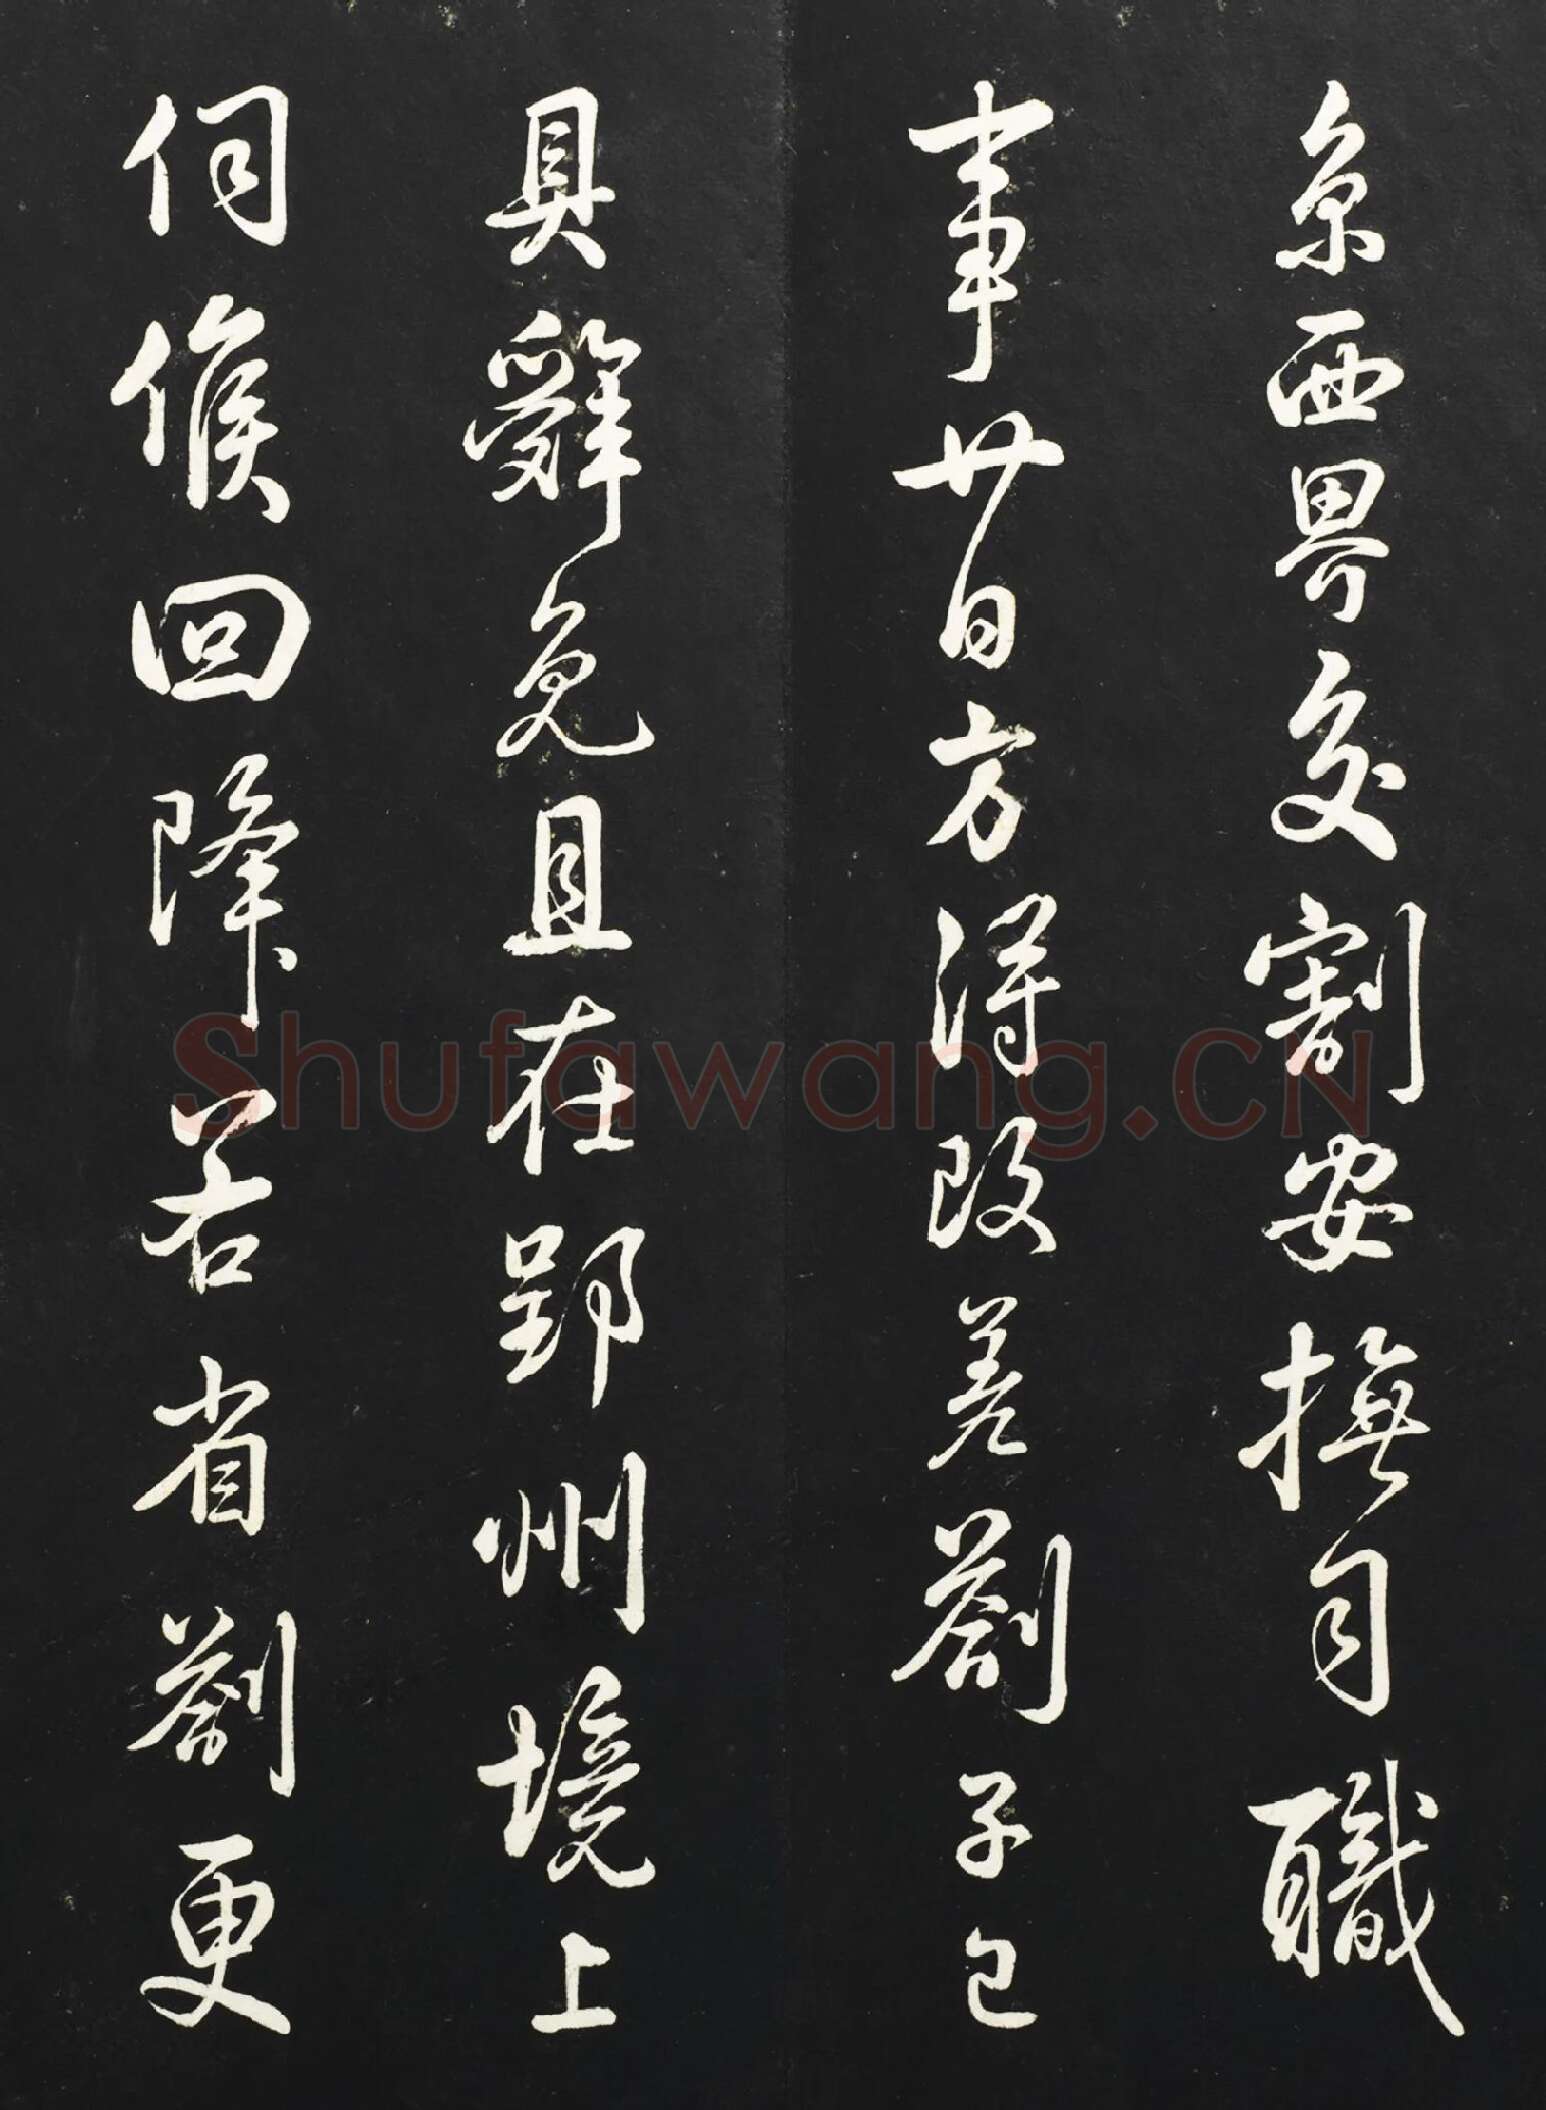 京西界交割安撫司職
事廿日方得改差劄子已
具辭免且在郢州境上
伺候回降若省劄更
Shufawang.CN